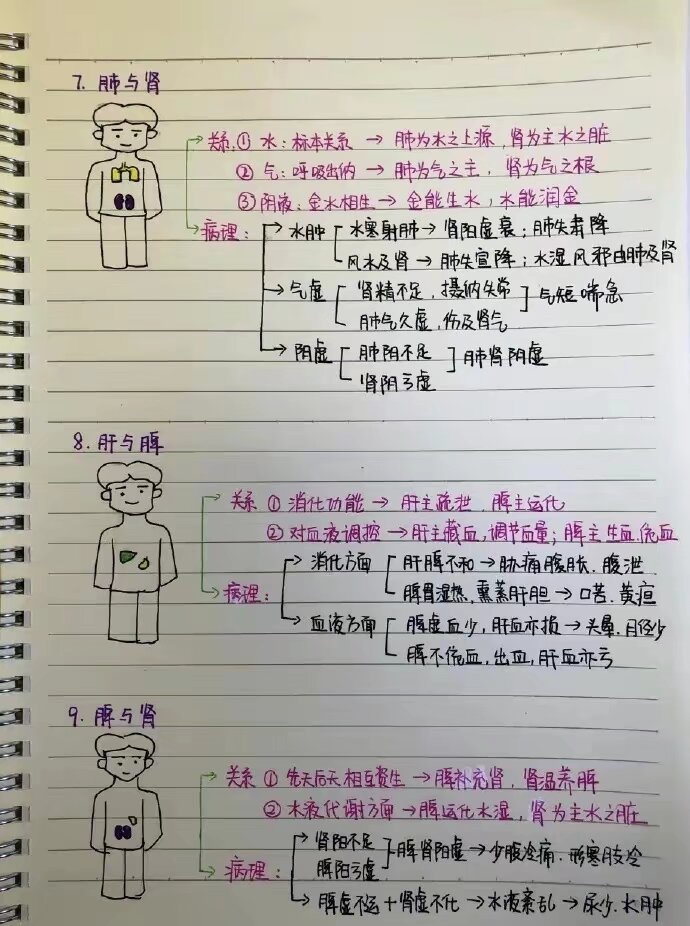 7. 肺与肾
关系 ① 水：标本关系 → 肺为水之上源，肾为主水之脏
② 气：呼吸出纳 → 肺为气之主，肾为气之根
③ 阴液：金水相生 → 金能生水，水能润金
病理： → 水肿 水寒射肺 → 肾阳虚衰；肺失肃降
风水及肾 → 肺失宣降；水湿风邪由肺及肾
→ 气虚 肾精不足，摄纳失常 ] 气短喘急
肺气久虚，伤及肾气
→ 阴虚 肺阴不足 ] 肺肾阴虚
肾阴亏虚
8. 肝与脾
关系 ① 消化功能 → 肝主疏泄，脾主运化
② 对血液调控 → 肝主藏血，调节血量；脾主生血，统血
→ 消化方面 肝脾不和 → 胁痛腹胀，腹泄
病理： 脾胃湿热，熏蒸肝胆 → 口苦，黄疸
→ 血液方面 脾虚血少，肝血亦损 → 头晕，月经少
脾不统血，出血，肝血亦亏
9. 脾与肾
关系 ① 先天后天相互资生 → 脾补充肾，肾温养脾
② 水液代谢方面 → 脾运化水湿，肾为主水之脏
→ 肾阳不足 ] 脾肾阳虚 → 少腹冷痛，形寒肢冷
病理： 脾阳亏虚
→ 脾虚不运 + 肾虚不化 → 水液紊乱 → 尿少，水肿